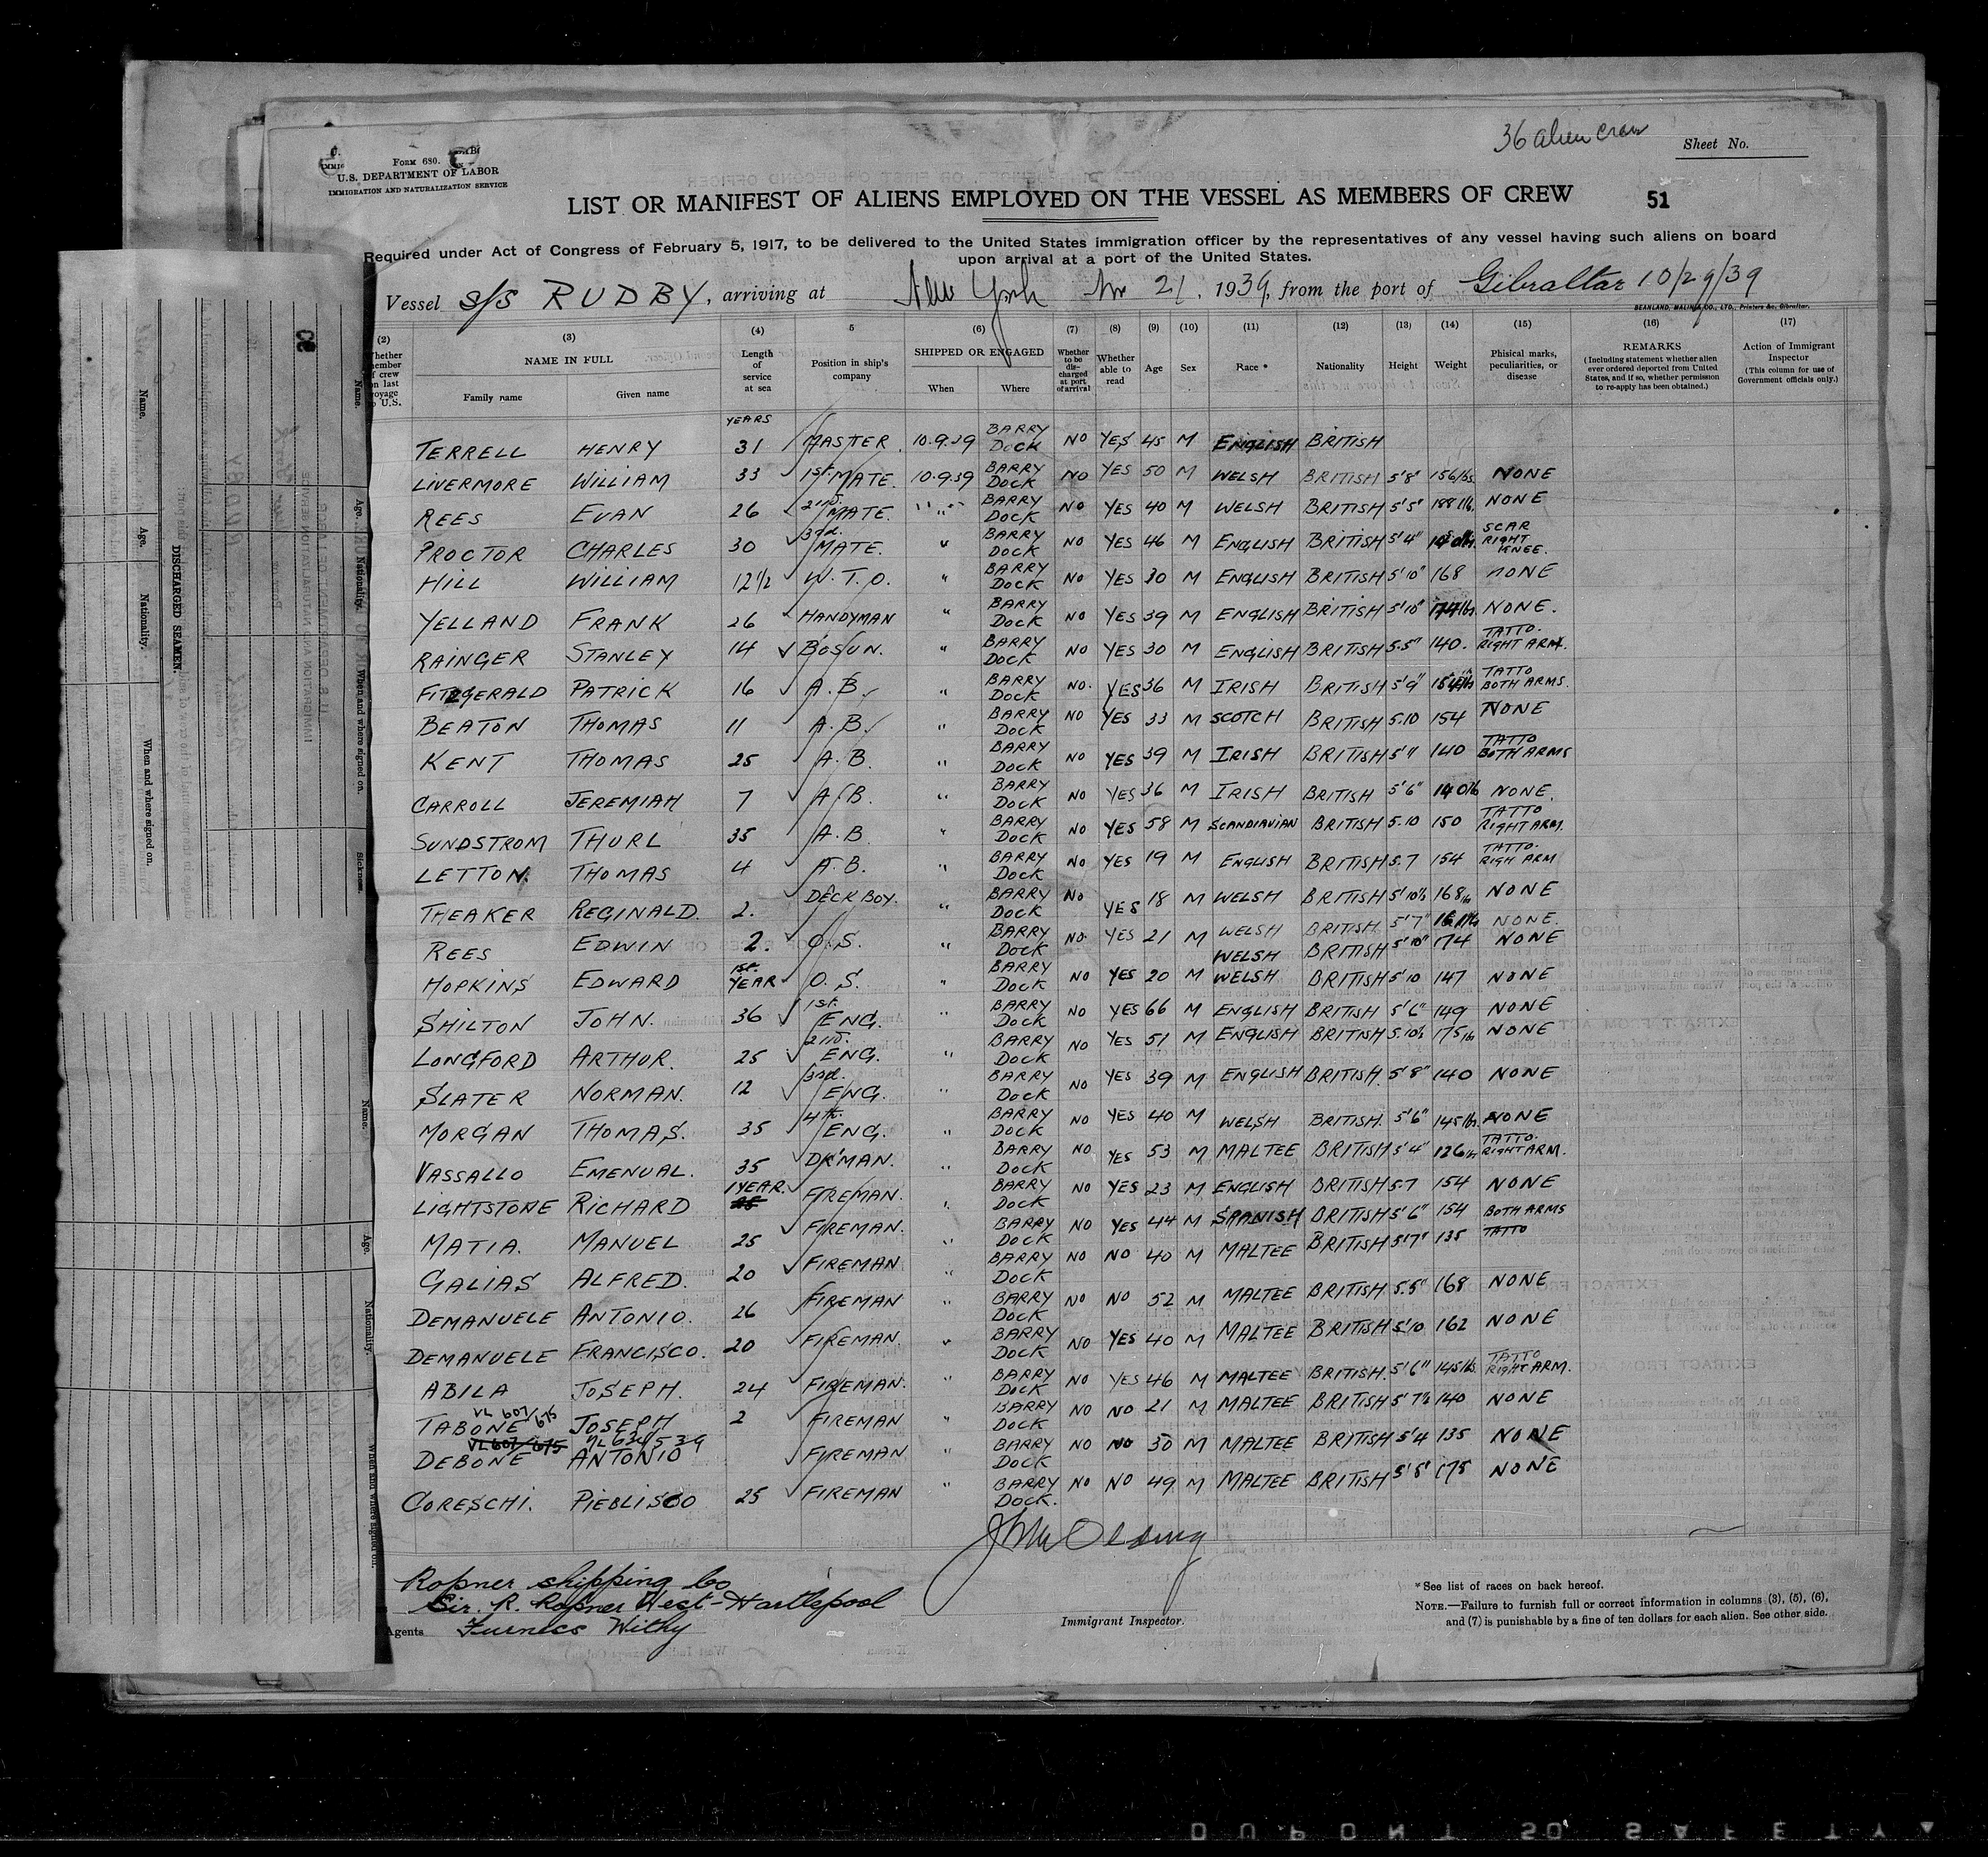 36 alien crew
Sheet No.
Form 680.
U.S. DEPARTMENT OF LABOR
IMMIGRATION AND NATURALIZATION SERVICE
LIST OR MANIFEST OF ALIENS EMPLOYED ON THE VESSEL AS MEMBERS OF CREW 51
Required under Act of Congress of February 5, 1917, to be delivered to the United States immigration officer by the representatives of any vessel having such aliens on board
upon arrival at a port of the United States.
Vessel S/S RUDBY, arriving at New York Nov 21, 1939, from the port of Gibraltar 10/29/39
BEANLAND, MALIN & CO., LTD., Printers &c, Gibraltar.
(2) (3) (4) 5 (6) (7) (8) (9) (10) (11) (12) (13) (14) (15) (16) (17)
Whether member of crew on last voyage to U.S. NAME IN FULL Family name Given name Length of service at sea Position in ship's company SHIPPED OR ENGAGED When Where Whether to be discharged at port of arrival Whether able to read Age Sex Race * Nationality Height Weight Phisical marks, peculiarities, or disease REMARKS (Including statement whether alien ever ordered deported from United States, and if so, whether permission to re-apply has been obtained.) Action of Immigrant Inspector (This column for use of Government officials only.)
YEARS
TERRELL HENRY 31 MASTER 10.9.39 BARRY DOCK NO YES 45 M ENGLISH BRITISH
LIVERMORE WILLIAM 33 1st MATE. 10.9.39 BARRY DOCK NO YES 50 M WELSH BRITISH 5'8" 156 lbs NONE
REES EVAN 26 2nd MATE. " " BARRY DOCK NO YES 40 M WELSH BRITISH 5'5" 188 lb. NONE
PROCTOR CHARLES 30 3rd. MATE. " BARRY DOCK NO YES 46 M ENGLISH BRITISH 5'4" SCAR RIGHT KNEE.
HILL WILLIAM 12 1/2 W.T.O. " BARRY DOCK NO YES 30 M ENGLISH BRITISH 5'10" 168 NONE
YELLAND FRANK 26 HANDYMAN " BARRY DOCK NO YES 39 M ENGLISH BRITISH 5'10" 174 lbs NONE.
RAINGER STANLEY 14 BOSUN. " BARRY DOCK NO YES 30 M ENGLISH BRITISH 5.5" 140. TATTO. RIGHT ARM.
FITZGERALD PATRICK 16 A.B. " BARRY DOCK NO. YES 36 M IRISH BRITISH 5'9" TATTO BOTH ARMS.
BEATON THOMAS 11 A.B. " BARRY DOCK NO YES 33 M SCOTCH BRITISH 5.10 154 NONE
KENT THOMAS 25 A.B. " BARRY DOCK NO YES 39 M IRISH BRITISH 140 TATTO BOTH ARMS
CARROLL JEREMIAH 7 A.B. " BARRY DOCK NO YES 36 M IRISH BRITISH 5'6" 140 lb NONE.
SUNDSTROM THURL 35 A.B. " BARRY DOCK NO YES 58 M SCANDIAVIAN BRITISH 5.10 150 TATTO RIGHT ARM.
LETTON. THOMAS 4 A.B. " BARRY DOCK NO YES 19 M ENGLISH BRITISH 5.7 154 TATTO. RIGH ARM
THEAKER REGINALD. 2. DECK BOY. " BARRY DOCK NO YES 18 M WELSH BRITISH 5'10½ 168 lb NONE
REES EDWIN 2. O.S. " BARRY DOCK NO. YES 21 M WELSH BRITISH 5'7" NONE.
WELSH BRITISH 5'10" 174 NONE
HOPKINS EDWARD 1st. YEAR O.S. " BARRY DOCK NO YES 20 M WELSH BRITISH 5'10 147 NONE
SHILTON JOHN. 36 1st. ENG. " BARRY DOCK NO YES 66 M ENGLISH BRITISH 5'6" 149 NONE
LONGFORD ARTHUR. 25 2nd. ENG. " BARRY DOCK NO YES 51 M ENGLISH BRITISH 5.10½ 175 lb NONE
SLATER NORMAN. 12 3rd. ENG. " BARRY DOCK NO YES 39 M ENGLISH BRITISH. 5'8" 140 NONE
MORGAN THOMAS. 35 4th. ENG. " BARRY DOCK NO YES 40 M WELSH BRITISH. 5'6" 145 lbs. NONE
VASSALLO EMENUAL. 35 DK'MAN. " BARRY DOCK NO YES 53 M MALTEE BRITISH 5'4" 126 lb TATTO. RIGHT ARM.
LIGHTSTONE RICHARD 1 YEAR. FIREMAN. " BARRY DOCK NO YES 23 M ENGLISH BRITISH 5.7 154 NONE
MATIA. MANUEL 25 FIREMAN. " BARRY DOCK NO YES 44 M SPANISH BRITISH 5'6" 154 BOTH ARMS TATTO
GALIAS ALFRED. 20 FIREMAN " BARRY DOCK NO NO 40 M MALTEE BRITISH 5'7" 135
DEMANUELE ANTONIO. 26 FIREMAN " BARRY DOCK NO NO 52 M MALTEE BRITISH 5.5" 168 NONE
DEMANUELE FRANCISCO. 20 FIREMAN. " BARRY DOCK NO YES 40 M MALTEE BRITISH 5'10 162 NONE
ABILA JOSEPH. 24 FIREMAN. " BARRY DOCK NO YES 46 M MALTEE BRITISH. 5'6" 145 lbs. TATTO RIGHT ARM.
VL 607/675
TABONE JOSEPH 2 FIREMAN " BARRY DOCK NO NO 21 M MALTEE BRITISH 5'7½ 140 NONE
VL 607/675
DEBONE ANTONIO FIREMAN " BARRY DOCK NO NO 30 M MALTEE BRITISH 5'4 135 NONE
CORESCHI. PIEBLISCO 25 FIREMAN " BARRY DOCK. NO NO 49 M MALTEE BRITISH 5'8" 175 NONE
Ropner shipping Co
Sir. R. Ropner West-Hartlepool
Agents Furness Withy
Immigrant Inspector.
*See list of races on back hereof.
NOTE.—Failure to furnish full or correct information in columns (3), (5), (6),
and (7) is punishable by a fine of ten dollars for each alien. See other side.
DISCHARGED SEAMEN.
Name. Age. Nationality. When and where signed on.
Name. Age. Nationality. When and where signed on. Sickness.
Name. Age. Nationality. When and where signed on.
DUPONT SO SAFETY